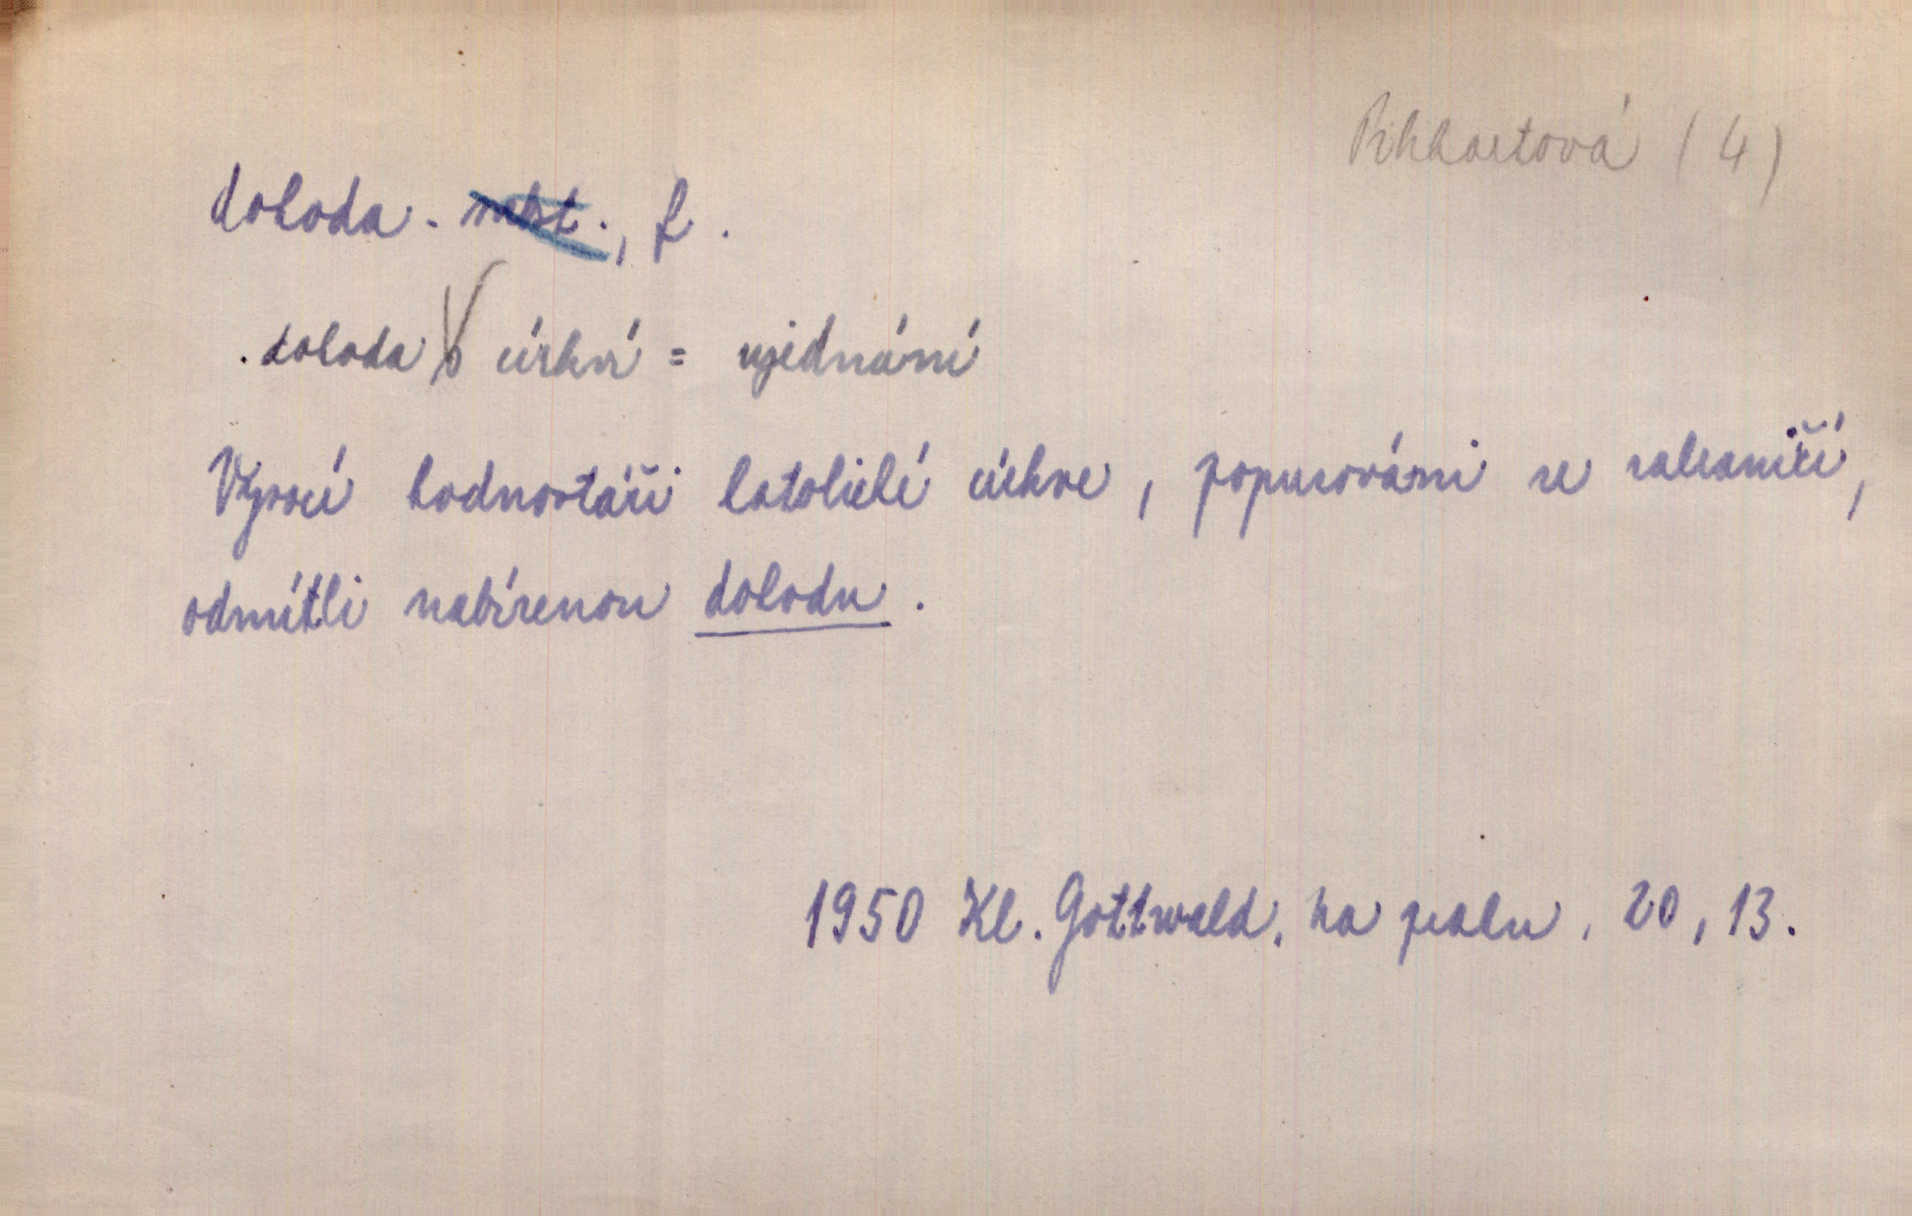 (4)
dohoda. subst., f.
dohoda s církví = ujednání
Vysocí hodnostáři katolické církve, popuzováni ze zahraničí,
odmítli nabízenou dohodu.
1950 Kl. Gottwald. Na prahu. 20, 13.